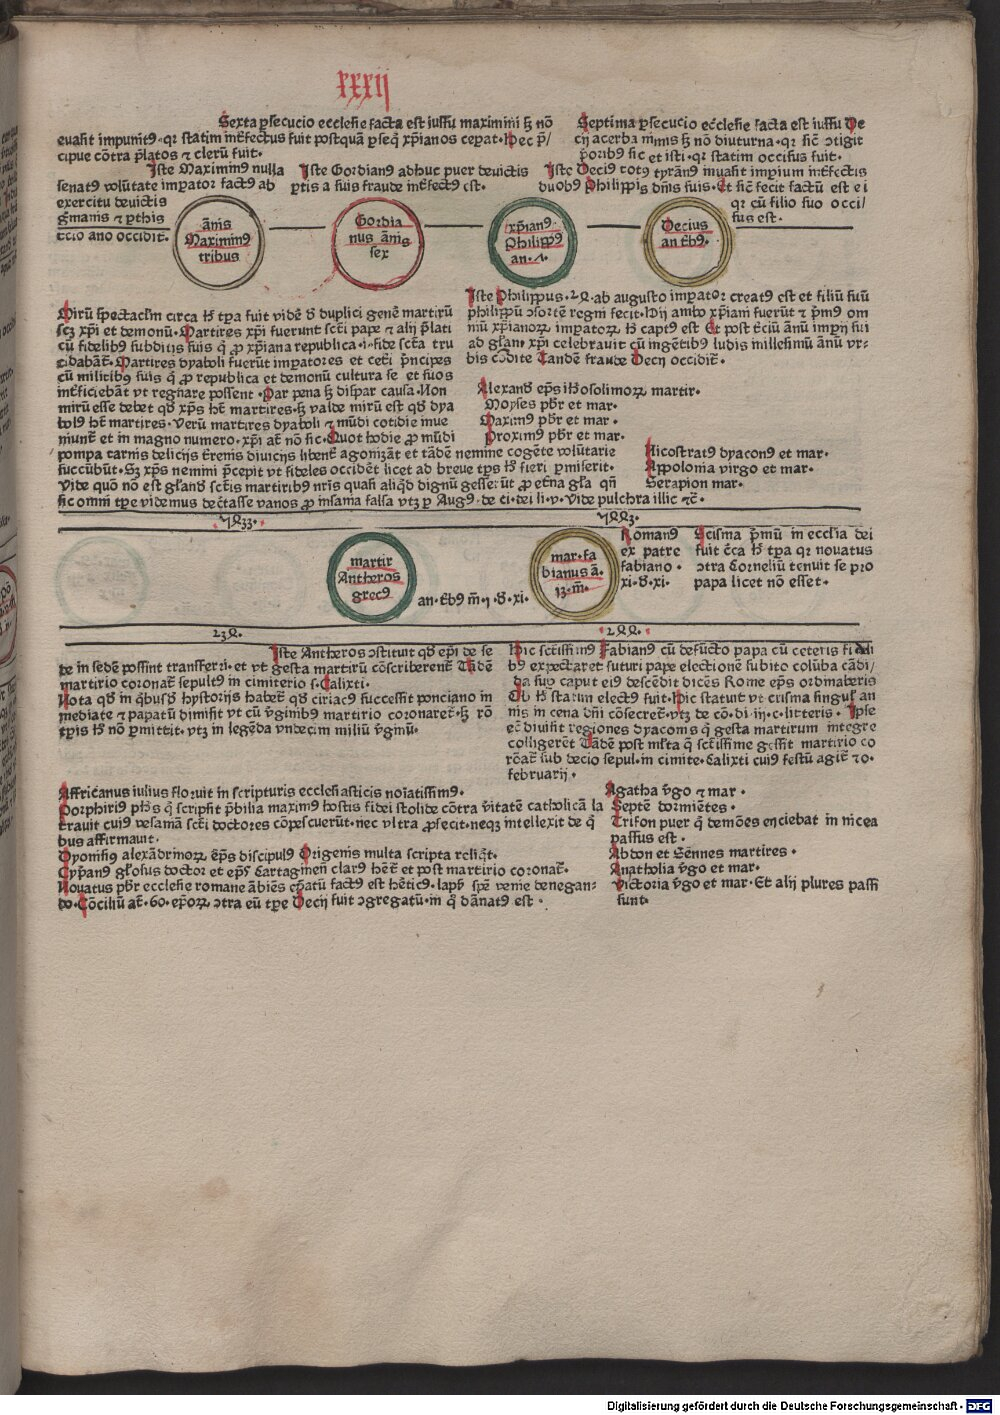 xxxij
Sexta ꝑsecucio ecclesie facta est iussu maximini ꝫ nõ
euasit impunit⁹ · qꝛ statim int̃fectus fuit postquã ꝑseq̃ xp̃ianos ceperat · Hec p̃/
cipue cõtra p̃latos ⁊ clerũ fuit ·
Septima ꝑsecucio ecclesie facta est iussu De
cij acerba nimis ꝫ nõ diuturna · qꝛ sic̃ ↄtigit
p̃oribꝰ sic et isti · qꝛ statim occisus fuit ·
Iste Maximin⁹ nulla
senat⁹ volũtate imp̃ator fact⁹ ab
exercitu deuictis
g̃manis ⁊ ꝑthis
tc̃io ano occidit̃ ·
Iste Gordian⁹ adhuc puer deuictis
ꝑtis a suis fraude int̃fect⁹ est ·
Iste Deci⁹ tot⁹ tyrãn⁹ inuasit imꝑium int̃fectis
duob⁹ Philippis dñis suis · Et sic̃ fecit factũ est ei
qꝛ cũ filio suo occi/
sus est ·
ãnis
Maximin⁹
tribus
Gordia
nus ãnis
sex
xp̃ian⁹
Philipp⁹
an · 7 ·
Decius
an t̃b⁹ ·
Mirũ spectacl̃m circa h̃ tꝑa fuit vidẽ d̃ duplici genẽ martirũ
scꝫ xp̃i et demonũ · Martires xp̃i fuerunt sc̃ti pape ⁊ alij p̃lati
cũ fidelib⁹ subditis suis q̃ ꝓ xp̃iana republica · i · fide sc̃ta tru
cidabãt̃ · Martires dyaboli fuerũt imꝑatores et cet̃i p̃ncipes
cũ militib⁹ suis q̃ ꝓ republica et demonũ cultura se et suos
int̃ficiebãt vt regnare possent · Par pena ꝫ dispar causa · Non
mirũ esse debet qd̃ xp̃s h̃t martires · ꝫ valde mirũ est qd̃ dya
bol⁹ h̃t martires · Verũ martires dyaboli ⁊ mũdi cotidie inue
niunt̃ et in magno numero · xp̃i at̃ nõ sic · Quot hodie ꝓ mũdi
pompa carnis delicijs t̃renis diuicijs libent̃ agonizãt et tãdẽ nemine cogẽte volũtarie
succũbũt · Sꝫ xp̃s nemini p̃cepit vt fideles occidẽt licet ad breue tꝑs h̃ fieri ꝑmiserit ·
Vide quõ nõ est gl̃and̃ sc̃tis martirib⁹ nr̃is quasi aliqd̃ dignũ gesser̃ut ꝓ et̃na gl̃a qñ
sic omni tꝑe videmus dec̃tasse vanos ꝓ insania falsa vtꝫ ꝑ Aug⁹ · de ci · dei li · v · Vide pulchra illic ⁊c̃ ·
Iste Philippus · 2ꝶ · ab augusto imꝑator creat⁹ est et filiũ suũ
philippũ ↄsortẽ regni fecit · Hij ambo xp̃iani fuerũt ⁊ p̃mi om
niũ xp̃ianoꝝ imꝑatoꝝ h̃ capt⁹ est Et post t̃ciũ ãnũ imp̃ij sui
ad gl̃am xp̃i celebrauit cũ ingẽtib⁹ ludis millesimũ ãnũ vr-
bis cõdite Tandẽ fraude Decij occidit̃ ·
Alexand̃ ep̃s ih̃osolimoꝝ martir ·
Moyses pb̃r et mar ·
Maxim⁹ pb̃r et mar ·
Proxim⁹ pb̃r et mar ·
Nicostrat⁹ dyacon⁹ et mar ·
Appolonia virgo et mar ·
Serapion mar ·
·7ꝶ33·
·7ꝶꝶ3·
martir
Antheros
grec⁹
an · t̃b⁹ m̃ · 1 · d̃ · xi ·
mar · fa
bianus ã ·
13 · m̃ ·
Roman⁹
ex patre
fabiano ·
xi · d̃ · xi ·
Scisma p̃mũ in ecclĩa dei
fuit c̃ca h̃ tꝑa qꝛ nouatus
ↄtra Corneliũ tenuit se pro
papa licet nõ esset ·
23ꝶ ·
· 2ꝶꝶ ·
Iste Antheros ↄstituit qd̃ ep̃i de se
de in sedẽ possint transferri · et vt gesta martirũ cõscriberent̃ Tãdẽ
martirio coronat̃ sepult⁹ in cimiterio s · Calixti ·
Nota qd̃ in q̃busd̃ hystorijs habet̃ qd̃ ciriac⁹ successit ponciano in
mediate ⁊ papatũ dimisit vt cũ v̓gĩnib⁹ martirio coronaret̃ · ꝫ rõ
tꝑis h̃ nõ ꝑmittit · vtꝫ in legẽda vndecim miliũ v̓ginũ ·
Hic sc̃tissim⁹ Fabian⁹ cũ defũcto papa cũ ceteris fideli
b⁹ expectaret futuri pape electionẽ subito colũba cãdi/
da sup̃ caput ei⁹ descẽdit dicẽs Rome ep̃s ordinaberis
Ob h̃ statim elect⁹ fuit · Hic statuit vt crisma singul̃ an
nis in cena dñi cõsecret̃ · vtꝫ de cõ · di · iij · c · litteris · Ipse
et̃ diuisit regiones dyaconis q̃ gesta martirum integre
colligerẽt Tãdẽ post ml̃ta q̃ sc̃tissime gessit martirio co
rõat̃ sub decio sepul · in cimite · Calixti cui⁹ festũ agit̃ 20 ·
februarij ·
Affricanus iulius floruit in scripturis ecclesiasticis noĩatissim⁹ ·
Porphiri⁹ ph̃s q̃ scripsit p̃bilia maxim⁹ hostis fidei stolide cõtra v̓itatẽ catholicã la
trauit cui⁹ vesaniã sc̃ti doctores cõpescuerũt · nec vltra ꝓfecit · neqꝫ intellexit de q̃
bus affirmauit ·
Dyonisi⁹ alexãdrinoꝝ ep̃s discipul⁹ Origenis multa scripta reliq̃t ·
Cyp̃an⁹ gl̃osus doctor et ep̃s Cartagineñ clar⁹ het̃ et post martirio coronat̃ ·
Nouatus pb̃r ecclesie romane ãbiẽs ep̃atũ fact⁹ est h̃etic⁹ · lapẜ spẽ venie denegan-
do · Cõciliũ at̃ · 60 · ep̃oꝝ ↄtra eũ tꝑe Decij fuit ↄgregatũ · in q̃ dãnat⁹ est ·
Agatha v̓go ⁊ mar ·
Septẽ dormiẽtes ·
Trifon puer q̃ demões enciebat in nicea
passus est ·
Abdon et Sẽnnes martires ·
Anatholia v̓go et mar ·
Victoria v̓go et mar · Et alij plures passi
sunt ·
Digitalisierung gefördert durch die Deutsche Forschungsgemeinschaft - DFG